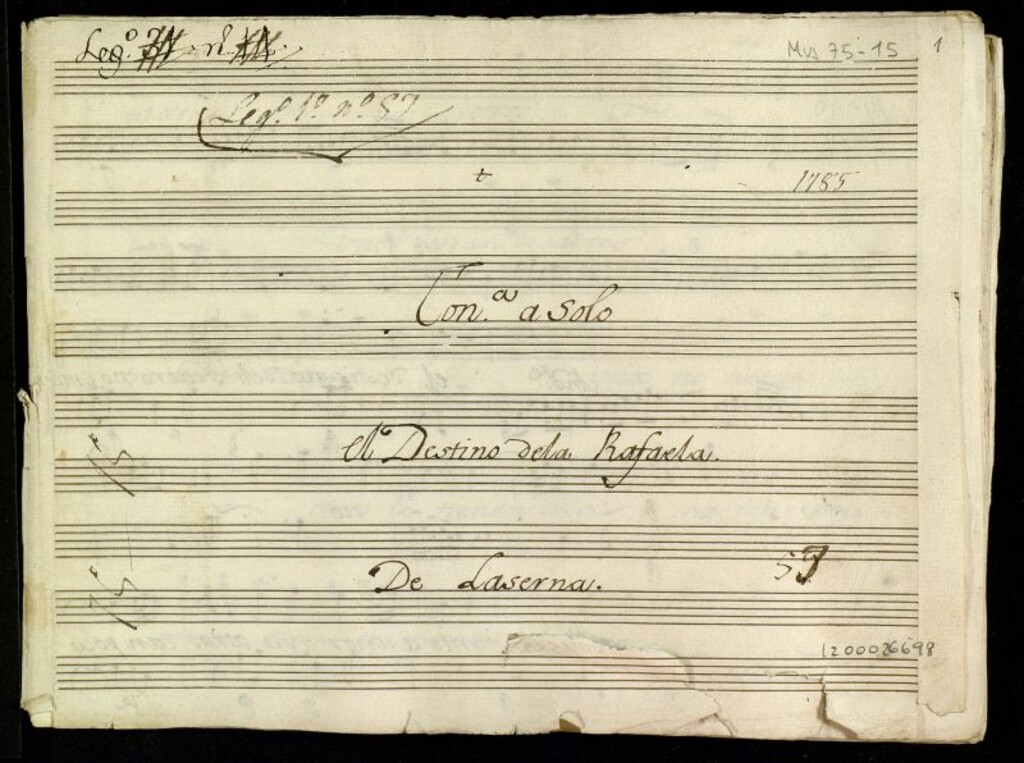 Leg.º nº
Mus 75-15
1
Leg.º 1º nº 57
1785
Ton.ª a Solo
el Destino dela Rafaela.
15
De Laserna.
57
15
1200026698